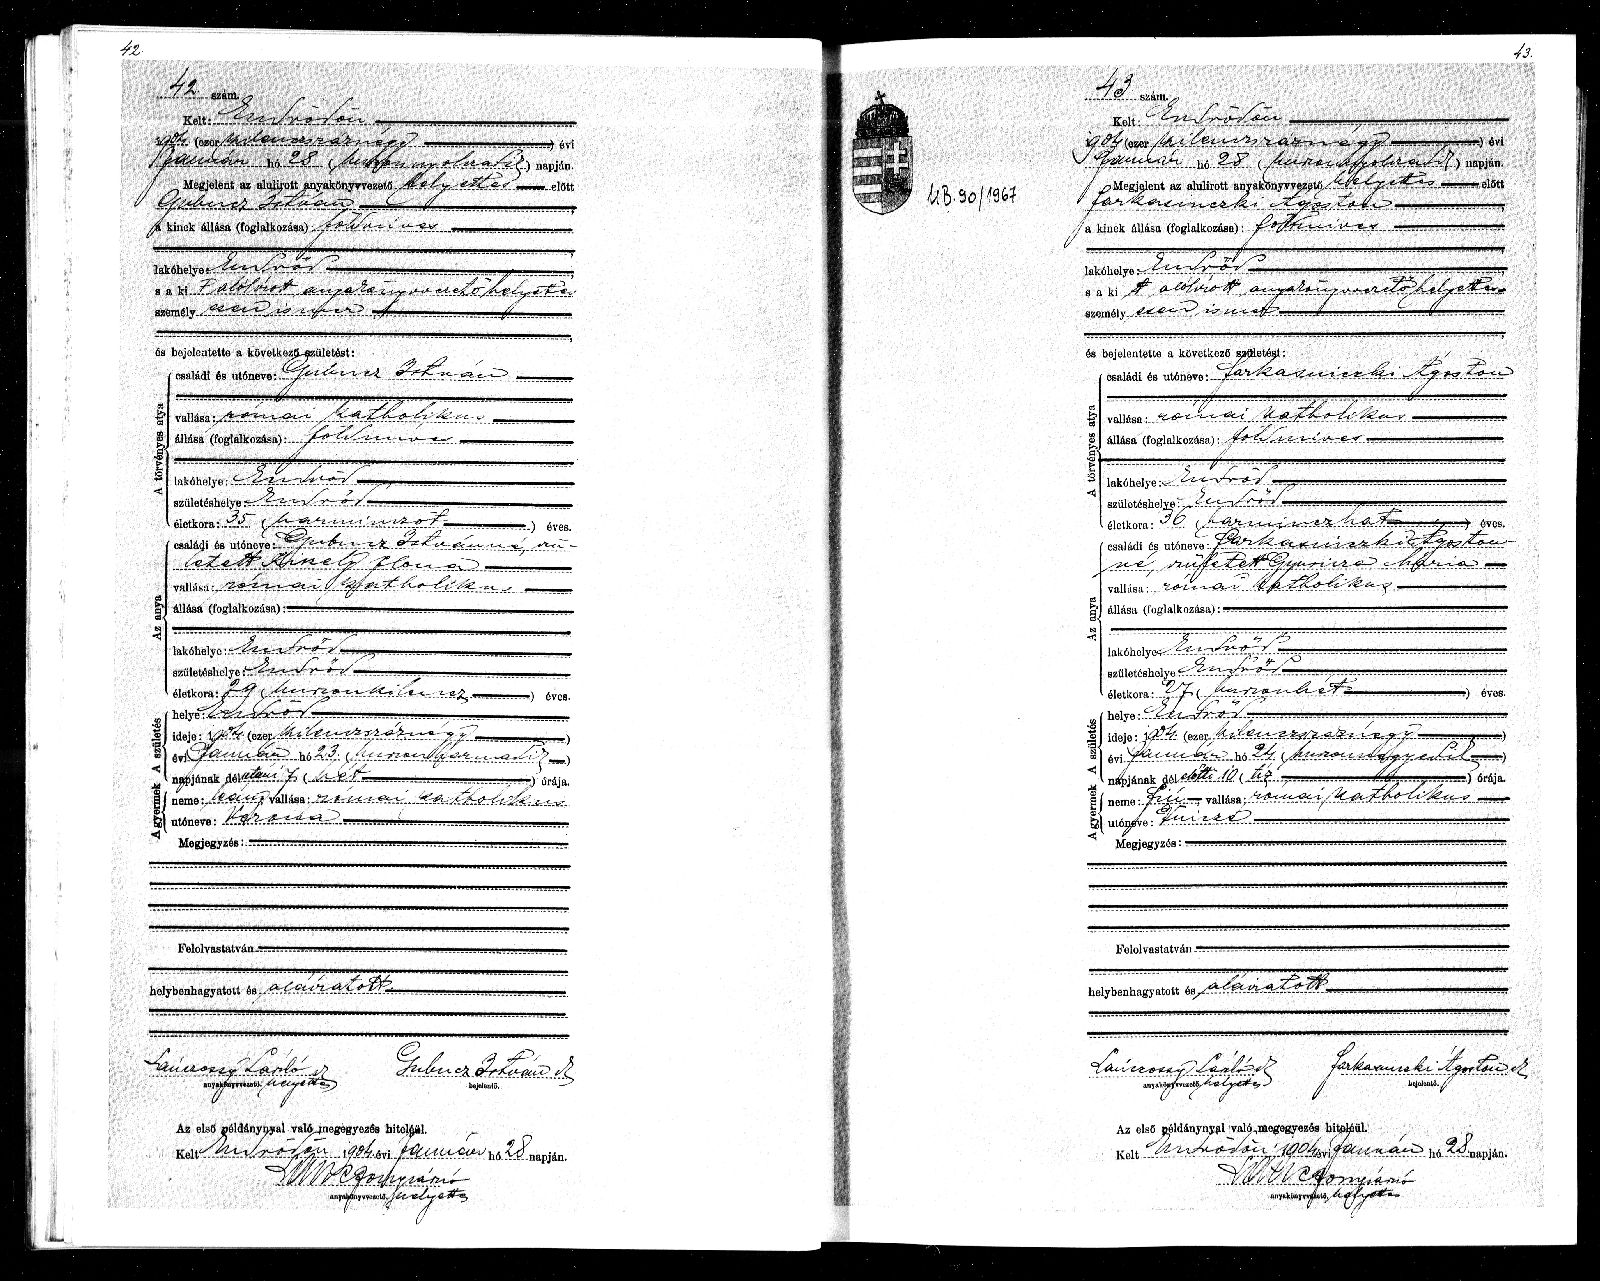 42
42 szám.
Kelt: Endrődön
1904 (ezer kilenczszáznégy) évi
Január hó 28 (huszonnyolczadik) napján.
Megjelent az alulirott anyakönyvvezető helyettes előtt
Gubucz István
a kinek állása (foglalkozása) földmives
lakóhelye: Endrőd
s a ki alólirott anyakönyvvezető helyettes
személyesen ismer
és bejelentette a következő születést:
A törvényes atya
családi és utóneve: Gubucz István
vallása: római katholikus
állása (foglalkozása): földmives
lakóhelye: Endrőd
születéshelye: Endrőd
életkora: 35 (harminczöt) éves.
Az anya
családi és utóneve: Gubucz Istvánné, szü-
letett Ilona
vallása: római katholikus
állása (foglalkozása):
lakóhelye: Endrőd
születéshelye: Endrőd
életkora: 29 (huszonkilencz) éves.
A gyermek A születés
helye: Endrőd
ideje: 1904 (ezer kilenczszáznégy)
évi Január hó 23 (huszonharmadik)
napjának délutáni 7 (hét) órája.
neme: leány vallása: római katholikus
utóneve:
Megjegyzés:
Felolvastatván
helybenhagyatott és aláiratott
László
anyakönyvvezető. helyettes
Gubucz István
bejelentő.
Az első példánynyal való megegyezés hiteléül.
Kelt Endrődön 1904 évi Január hó 28 napján.
anyakönyvvezető. helyettes
HB. 90/1967
43.
43 szám.
Kelt: Endrődön
1904 (ezer kilenczszáznégy) évi
Január hó 28. (huszonnyolczadik) napján.
Megjelent az alulirott anyakönyvvezető helyettes előtt
Farkasinszki Ágoston
a kinek állása (foglalkozása): földmives
lakóhelye: Endrőd
s a ki alólirott anyakönyvvezető helyettes
személyesen ismer
és bejelentette a következő születést:
A törvényes atya
családi és utóneve: Farkasinszki Ágoston
vallása: római katholikus
állása (foglalkozása): földmives
lakóhelye: Endrőd
születéshelye: Endrőd
életkora: 36 (harminczhat) éves.
Az anya
családi és utóneve: Farkasinszki Ágoston-
né, született Mária
vallása: római katholikus
állása (foglalkozása):
lakóhelye: Endrőd
születéshelye Endrőd
életkora: 27 (huszonhét) éves.
A gyermek A születés
helye: Endrőd
ideje: 1904 (ezer kilenczszáznégy)
évi Január hó 24 (huszonnegyedik)
napjának délelőtti 10 (tiz) órája.
neme: fiú vallása: római katholikus
utóneve:
Megjegyzés:
Felolvastatván
helybenhagyatott és aláiratott
László
anyakönyvvezető. helyettes
Farkasinszki Ágoston
bejelentő.
Az első példánynyal való megegyezés hiteléül.
Kelt Endrődön 1904 évi Január hó 28 napján.
anyakönyvvezető. helyettes